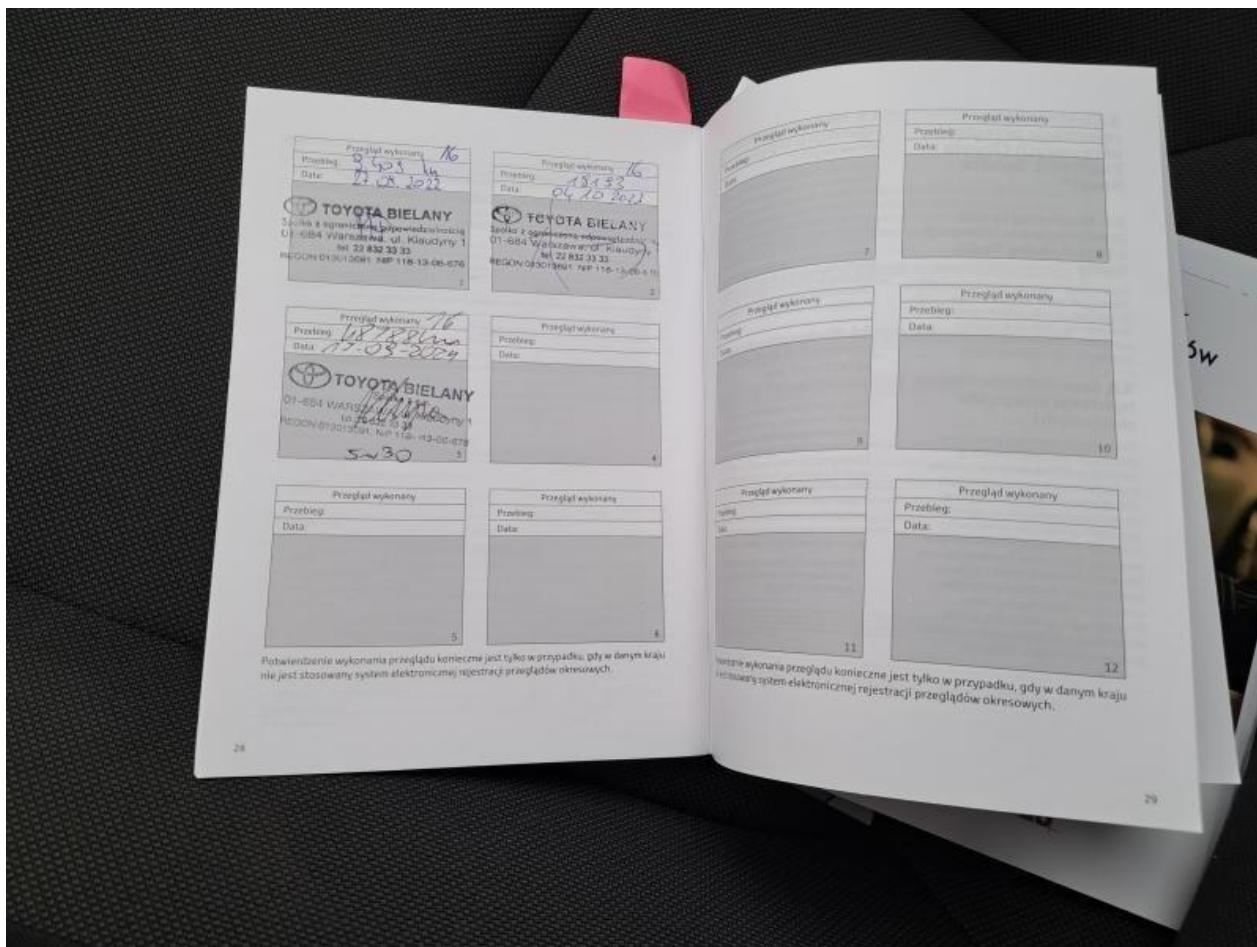 Przegląd wykonany 16
Przebieg: 9 403 km
Data: 27.09.2022
TOYOTA BIELANY
Spółka z ograniczoną odpowiedzialnością
01-684 Warszawa, ul. Klaudyny 1
tel. 22 832 33 33
REGON 013013691 NIP 118-13-06-676
1
Przegląd wykonany 16
Przebieg: 18193
Data: 04.10.2023
TOYOTA BIELANY
Spółka z ograniczoną odpowiedzialnością
01-684 Warszawa, ul. Klaudyny
tel. 22 832 33 33
REGON 013013691 NIP 118-13-06-676
2
Przegląd wykonany 16
Przebieg:
Data: 17-09-2024
TOYOTA BIELANY
01-684
REGON 013013691, NIP 118-13-06-676
5w30
3
Przegląd wykonany
Przebieg:
Data:
4
Przegląd wykonany
Przebieg:
Data:
5
Przegląd wykonany
Przebieg:
Data:
6
Potwierdzenie wykonania przeglądu konieczne jest tylko w przypadku, gdy w danym kraju
nie jest stosowany system elektronicznej rejestracji przeglądów okresowych.
28
Przegląd wykonany
Przebieg:
Data:
7
Przegląd wykonany
Przebieg:
Data:
8
Przegląd wykonany
Przebieg:
Data:
9
Przegląd wykonany
Przebieg:
Data:
10
Przegląd wykonany
Przebieg:
11
Przegląd wykonany
Przebieg:
Data:
12
wykonania przeglądu konieczne jest tylko w przypadku, gdy w danym kraju
jest stosowany system elektronicznej rejestracji przeglądów okresowych.
29
ów